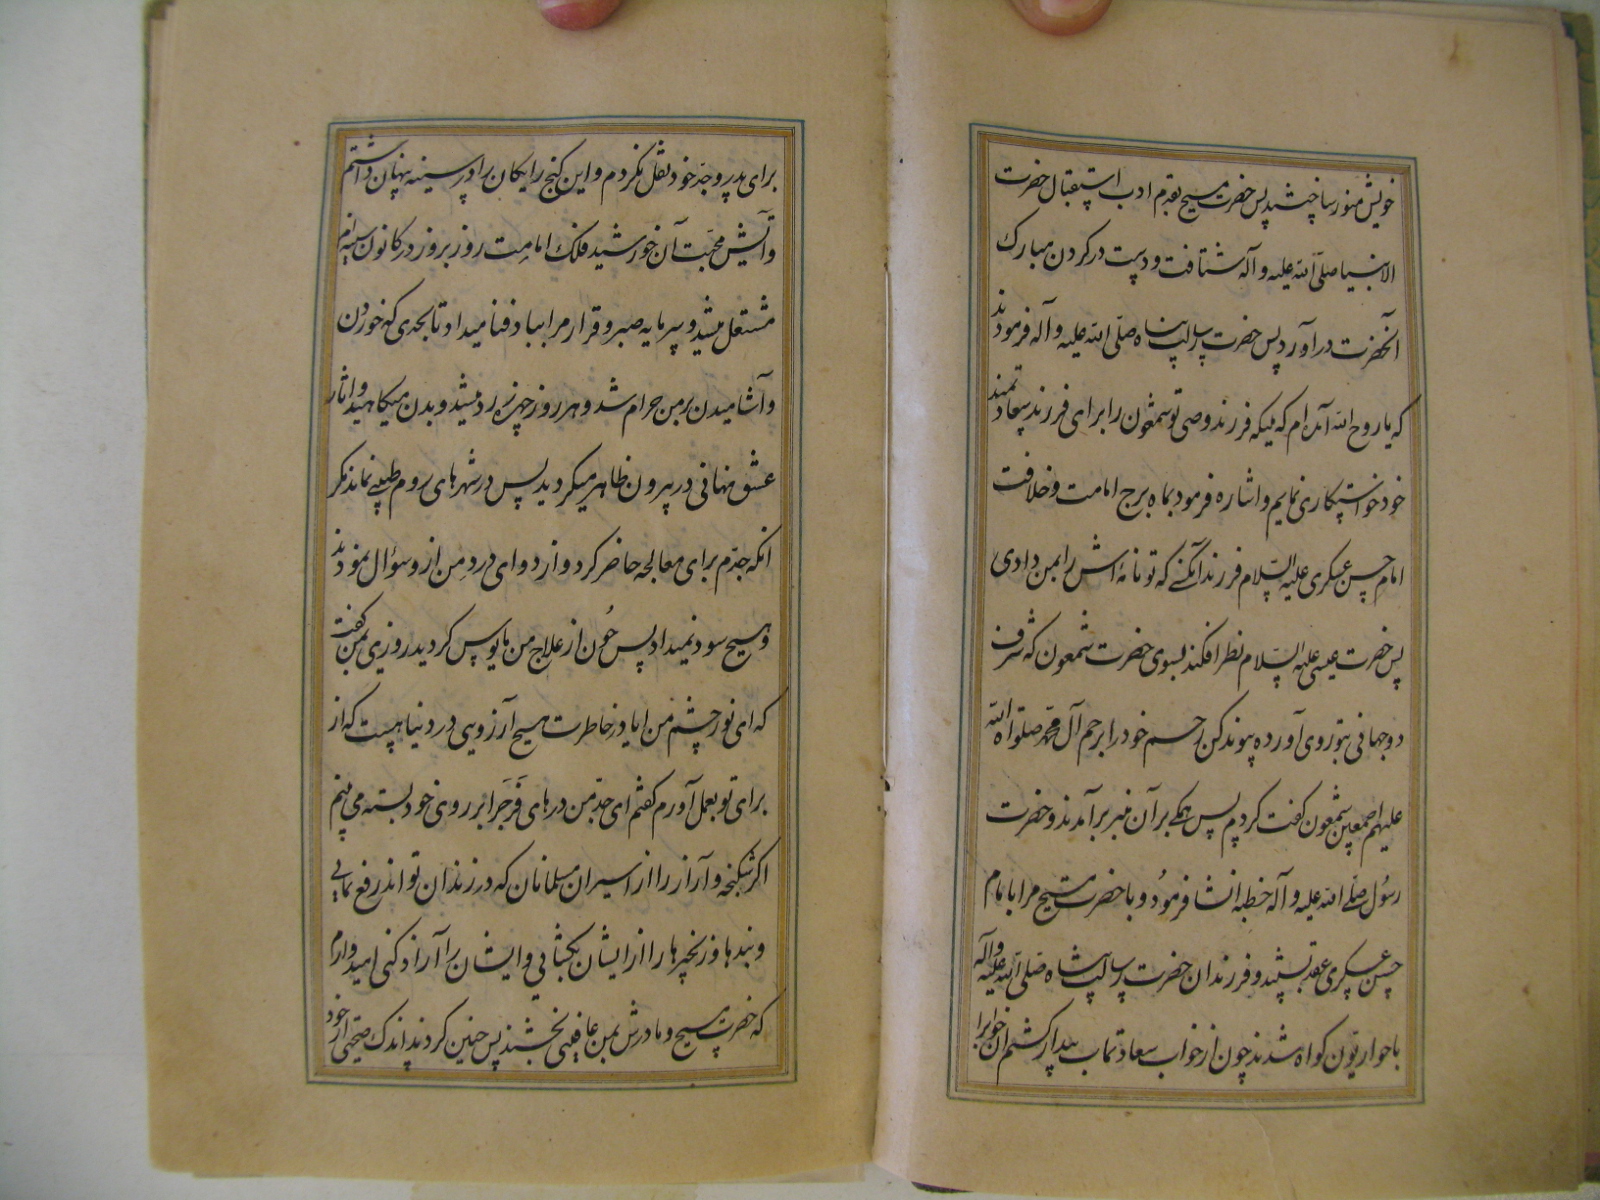 خویش منور ساختند پس حضرت مسیح بقدم ادب استقبال حضرت
الانبیا صلی الله علیه و آله شتافت و دست در کردن مبارک
آنحضرت در آورد پس حضرت رسالت پناه صلی الله علیه و آله فرمودند
که یا روح الله آمده ام که ملیکه فرزند وصی تو شمعون را برای فرزند سعادتمند
خود خواستکاری نمایم و اشاره فرمود بماه برج امامت و خلافت
امام حسن عسکری علیه السلام فرزند آنکسے که تو نامۀ اش را بمن دادی
پس حضرت عیسی علیه السلام نظر افکند بسوی حضرت شمعون که شرف
دو جهانی بتو روی آورده پیوند کن رحم خود را برحم آل محمد صلوة الله
علیهم اجمعین شمعون کفت کردم پس همکے بر آن منبر بر آمدند و حضرت
رسول صلے الله علیه و آله خطبه انشا فرمود و با حضرت مسیح مرا با امام
حسن عسکری عقد بستند و فرزندان حضرت رسالت پناه صلی الله علیه و آله
با حواریون کواه شدند چون از خواب سعادتماب بیدار کشتم آن خوابرا
برای پدر و جد خود نقل نکردم و این کنج رایکان را در سینه پنهان داشتم
و آتش محبت آن خورشید فلک امامت روز بروز در کانون سینه ام
مشتعل میشد و سرمایه صبر و قرار مرا بباد فنا میداد تا بحدی که خوردن
و آشامیدن بر من حرام شد و هر روز چهره زرد میشد و بدن میکاهید و اثار
عشق نهانی در بیرون ظاهر میکردید پس در شهرهای روم طبیبے نماند مکر
انکه جدم برای معالجه حاضر کرد و از دوای درد من از و سؤال نمودند
و هیچ سود نمیداد پس چون از علاج من مایوس کردید روزی بمن کفت
که ای نور چشم من ایا در خاطرت هیچ آرزویی در دنیا هست که از
برای تو بعمل آورم کفتم ای جد من درهای فرج را بر روی خود بسته می بینم
اکر شکنجه و آزار را از اسیران مسلمانان که در زندان تو اند رفع نمایی
و بندها و زنجیرها را از ایشان بکشایی و ایشان را آزاد کنی امیدوارم
که حضرت مسیح و مادرش بمن عافیتی بخشند پس چنین کردند اندک صحتی از خود